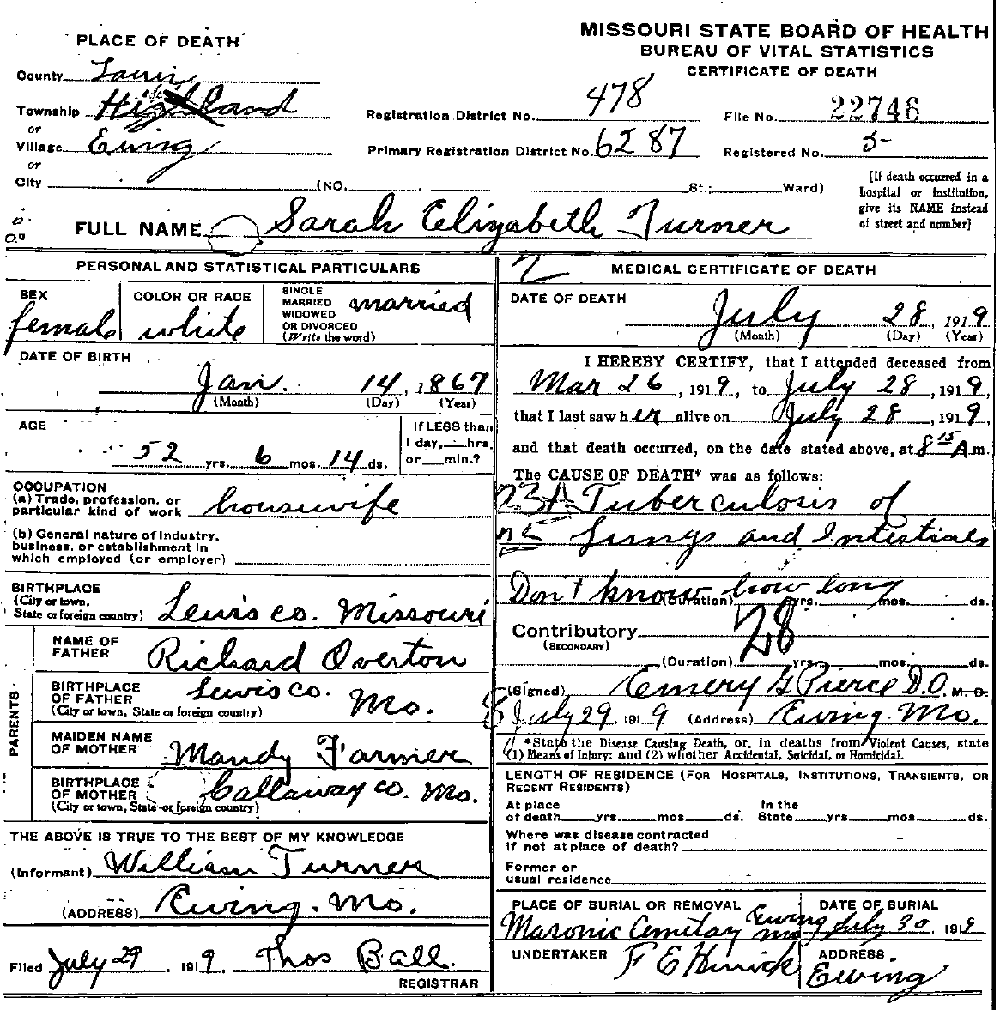 MISSOURI STATE BOARD OF HEALTH
BUREAU OF VITAL STATISTICS
CERTIFICATE OF DEATH
PLACE OF DEATH
County Lewis
Township Highland
or
Village Ewing
or
City (NO. St; Ward)
Registration District No. 478
File No. 22746
Primary Registration District No. 6287
Registered No. 5
[If death occurred in a
hospital or institution,
give its NAME instead
of street and number]
FULL NAME Sarah Elizabeth Turner
PERSONAL AND STATISTICAL PARTICULARS
SEX
female
COLOR OR RACE
white
SINGLE
MARRIED
WIDOWED
OR DIVORCED
(Write the word)
married
DATE OF BIRTH
Jan. 14, 1867
(Month) (Day) (Year)
AGE
52 yrs. 6 mos. 14 ds.
If LESS than
1 day, hrs.
or min.?
OCCUPATION
(a) Trade, profession, or
particular kind of work housewife
(b) General nature of industry,
business, or establishment in
which employed (or employer)
BIRTHPLACE
(City or town,
State or foreign country) Lewis co. Missouri
PARENTS
NAME OF
FATHER Richard Overton
BIRTHPLACE
OF FATHER
(City or town, State or foreign country)
Lewis co. Mo.
MAIDEN NAME
OF MOTHER Mandy Farmer
BIRTHPLACE
OF MOTHER
(City or town, State or foreign country)
Callaway co. Mo.
THE ABOVE IS TRUE TO THE BEST OF MY KNOWLEDGE
(Informant) William Turner
(ADDRESS) Ewing. Mo.
Filed July 29 1919 Thos Ball.
REGISTRAR
2
MEDICAL CERTIFICATE OF DEATH
DATE OF DEATH
July 28, 1919
(Month) (Day) (Year)
I HEREBY CERTIFY, that I attended deceased from
Mar 26, 1919, to July 28, 1919,
that I last saw her alive on July 28, 1919,
and that death occurred, on the date stated above, at 8 15 A.m.
The CAUSE OF DEATH* was as follows:
Tuberculosis of
Lungs and Intestials
Don't know how long
(Duration) yrs. mos. ds.
Contributory
(SECONDARY)
28
(Duration) yrs. mos. ds.
(Signed) Emery G Pierce D.O. M. D.
July 29 1919 (Address) Ewing. Mo.
*State the Disease Causing Death, or, in deaths from Violent Causes, state
(1) Means of Injury; and (2) whether Accidental, Suicidal, or Homicidal.
LENGTH OF RESIDENCE (FOR HOSPITALS, INSTITUTIONS, TRANSIENTS, OR
RECENT RESIDENTS)
At place
of death yrs. mos. ds.
In the
State yrs. mos. ds.
Where was disease contracted
if not at place of death?
Former or
usual residence
PLACE OF BURIAL OR REMOVAL
Masonic Cemitary Ewing Mo
DATE OF BURIAL
July 30, 1919
UNDERTAKER
F E
ADDRESS
Ewing